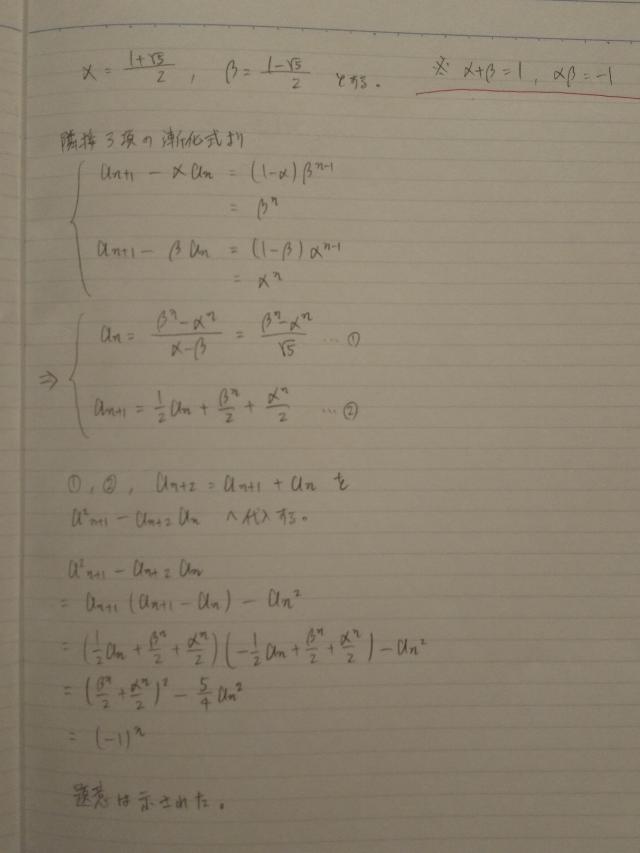 α = (1+√5)/2 , β = (1-√5)/2 とする。 ※ α+β=1 , αβ=-1
隣接3項の漸化式より
a_{n+1} - αa_n = (1-α)β^{n-1}
= β^n
a_{n+1} - βa_n = (1-β)α^{n-1}
= α^n
⇒ a_n = (β^n-α^n)/(α-β) = (β^n-α^n)/√5 … ①
a_{n+1} = 1/2 a_n + β^n/2 + α^n/2 … ②
①, ②, a_{n+2} = a_{n+1} + a_n を
a²_{n+1} - a_{n+2} a_n へ代入する。
a²_{n+1} - a_{n+2} a_n
= a_{n+1} (a_{n+1} - a_n) - a_n²
= (1/2 a_n + β^n/2 + α^n/2)(-1/2 a_n + β^n/2 + α^n/2) - a_n²
= (β^n/2 + α^n/2)² - 5/4 a_n²
= (-1)^n
題意は示された。